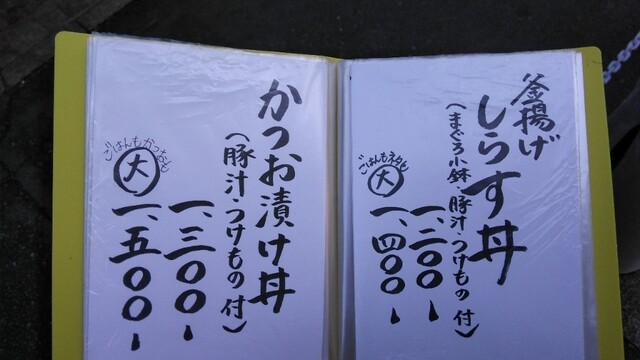 釜揚げ
しらす丼
(まぐろ小鉢・豚汁・つけもの付)
一、二〇〇
ごはんもネタも
大
一、四〇〇
かつお漬け丼
(豚汁・つけもの付)
一、三〇〇
ごはんもかつおも
大
一、五〇〇